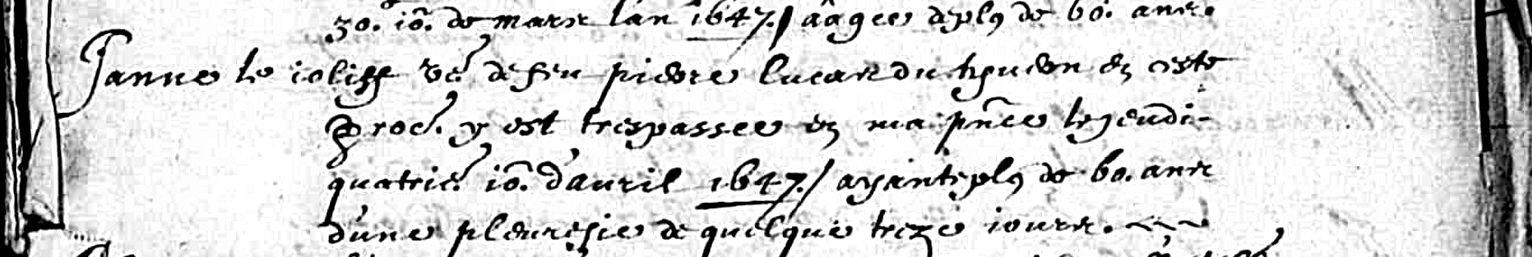 30. io. de mars lan 1647./ aagee deplus de 60. ans.
Janne le ioliff ve. de feu pierre lucas du en ceste
paroc. y est trespassee en ma pñce le jeudi
quatrie. io. d'auril 1647./ ayant plus de 60. ans
d'une pleuresie de quelque treze iours.